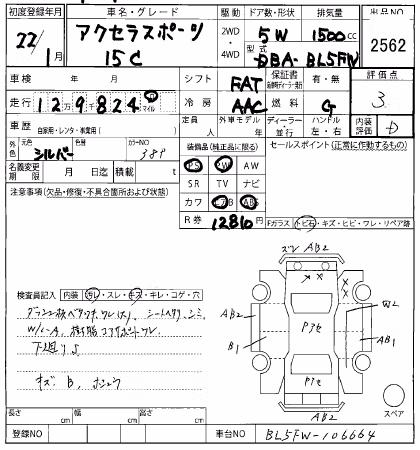 初度登録年月 車名・グレード 駆動 ドア数・形状 排気量 出品NO
22/1月 アクセラスポーツ 2WD・4WD 5W 1500cc 2562
15C 型式 DBA-BL5FW
車検 年 月 シフト FAT 保証書 有・無 評価点
走行 129千824 マイル 冷房 AAC 燃料 G 3
車歴 自家用・レンタ・事業用( ) 定員 人 外車モデル 年 ディーラー 並行 ハンドル 左・右 内装評価 D
外色 元色 シルバー 色替 カラーNO 38P
装備品(純正品に限る) セールスポイント(正常に作動するもの)
名義変更期限 月 日迄 積載 t
PS PW AW
SR TV ナビ
カワ エアB ABS
R券 12810円
注意事項(欠品・修復・不具合箇所および状態)
Fガラス トビ石・キズ・ヒビ・ワレ・リペア跡
検査員記入 内装 ヨレ・スレ・キズ・キレ・コゲ・穴
下廻りサ
キズ B
ズレ AB2
AB2
B1
AB1
Pアセ
Pアセ
AB2
スペア
長さ cm 幅 cm 高さ cm
登録NO 車台NO BL5FW-106664